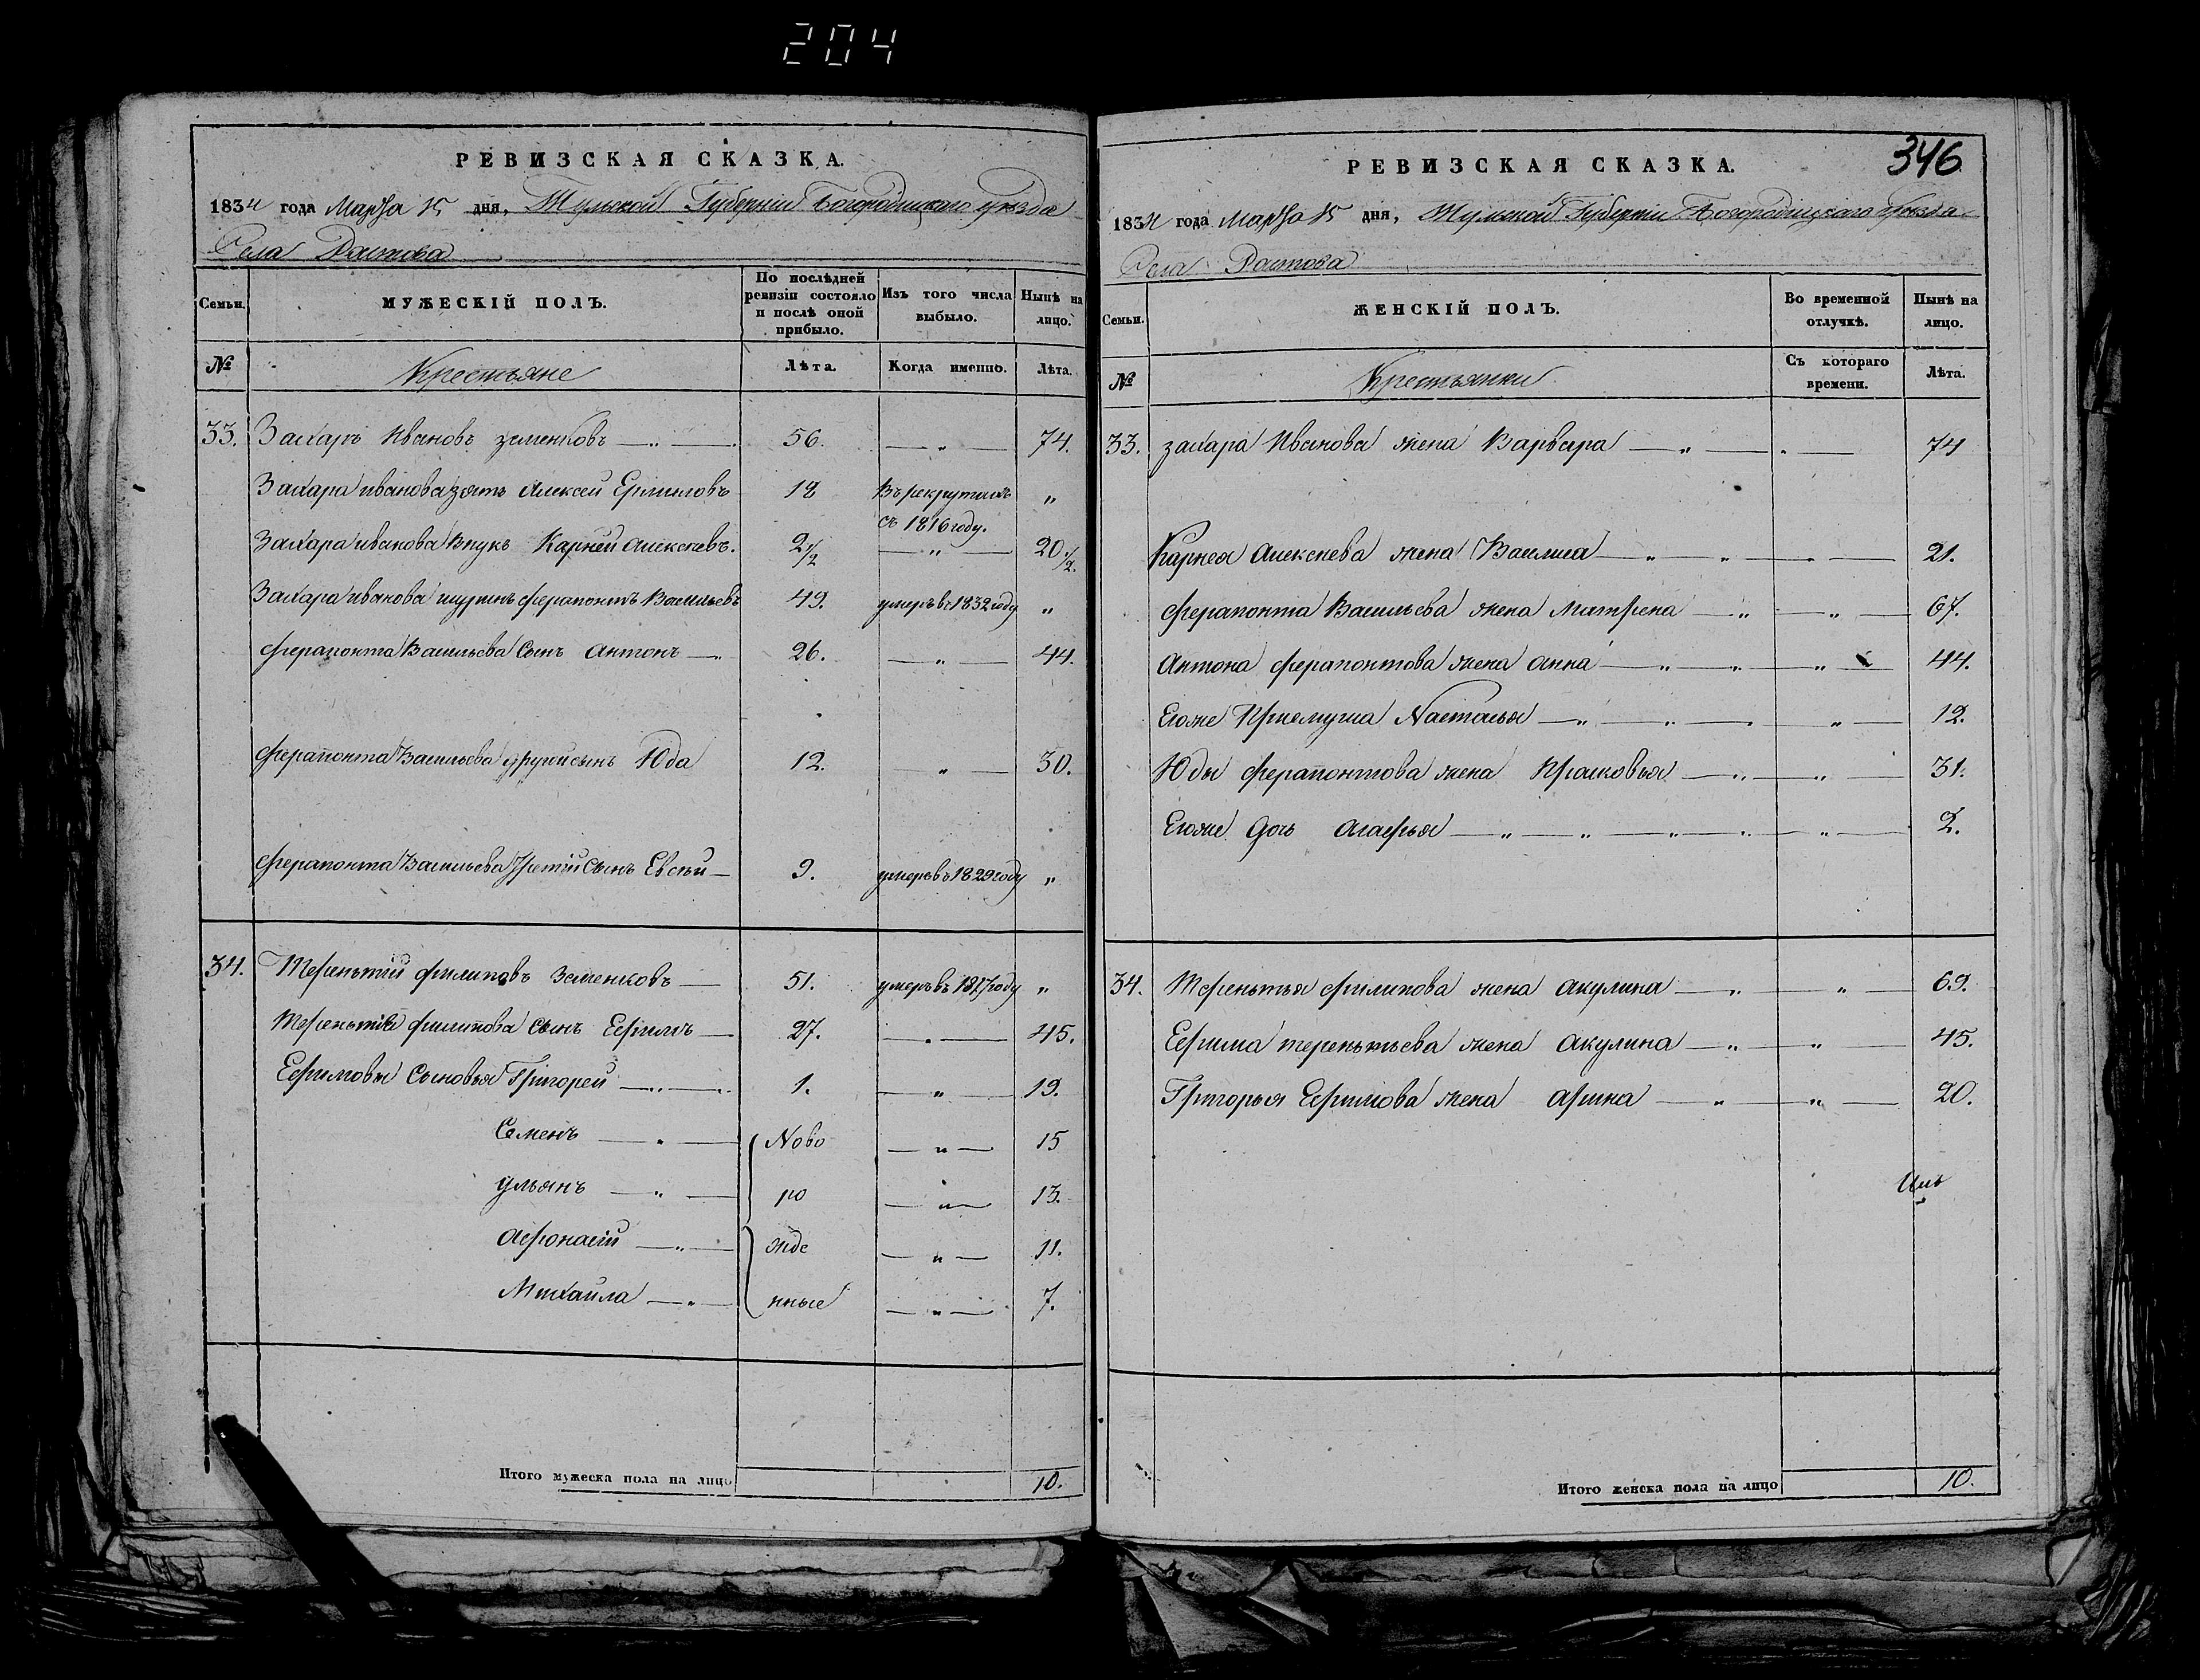 204
РЕВИЗСКАЯ СКАЗКА.
1834 года Марта 15 дня, Тульской Губерніи Богородицкаго уезда
Села
Семьи. МУЖЕСКІЙ ПОЛЪ. По послѣдней ревизіи состояло и послѣ оной прибыло. Изъ того числа выбыло. Нынѣ на лицо.
№ Крестьяне Лѣта. Когда именно. Лѣта.
33. Захаръ Ивановъ 56. — „ — 74.
Захара иванова зять Алексей Ермиловъ 18 Въ рекрутахъ с 1816 году. „
Захара иванова внукъ Карней алексеевъ. 2 1/2 — „ — 20 1/2.
Захара иванова шуринъ ферапонтъ Васильевъ 49. умеръ въ 1832 году „
ферапонта Васильева Сынъ антонъ — 26. — „ — 44.
ферапонта Васильева другий сынъ Юда 12. „ — 30.
ферапонта Васильева третий Сынъ Евсѣй — 9. умеръ въ 1829 году „
34. Терентий филиповъ — 51. умеръ въ 1817 году „
Терентия филипова Сынъ Ефимъ — 27. — „ — 45.
Ефимовы Сыновья Григорей — 1. — „ — 19.
Семенъ — „ — Ново — „ — 15
ульянъ — „ — ро — „ — 13.
афонасий — „ — жде — „ — 11.
Михаила — „ — нные — „ — 7.
Итого мужеска пола на лицо 10.
346
РЕВИЗСКАЯ СКАЗКА.
1834 года Марта 15 дня, Тульской Губерніи Богородицкаго уезда
Села
Семьи. ЖЕНСКІЙ ПОЛЪ. Во временной отлучкѣ. Нынѣ на лицо.
№ Крестьянки Съ котораго времени. Лѣта.
33. захара Иванова жена Варвара — „ — „ — 74
Карнея алексеева жена Василиса — „ „ — „ — 21.
ферапонта Васильева жена матрена — „ — „ — 67.
антона ферапонтова жена анна — „ — „ — „ — 44.
Егоже Приемуша Настасья — „ — „ — „ — 12.
Юды ферапонтова жена Прасковья — „ — „ — 31.
Егоже дочь агафья — „ — „ — „ — „ — 2.
34. Терентья филипова жена акулина — „ — „ — 69.
Ефима терентьева жена акулина — „ — „ — 45.
Григорья Ефимова жена арина — „ — „ — 20.
Итого женска пола на лицо 10.